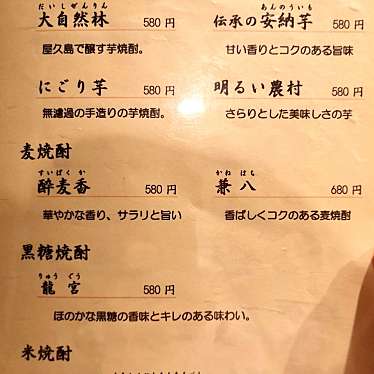 だいしぜんりん
大自然林 580円
屋久島で醸す芋焼酎。
あんのういも
伝承の安納芋 580円
甘い香りとコクのある旨味
にごり芋 580円
無濾過の手造りの芋焼酎。
明るい農村 580円
さらりとした美味しさの芋
麦焼酎
すいばくか
酔麦香 580円
華やかな香り、サラリと旨い
かねはち
兼八 680円
香ばしくコクのある麦焼酎
黒糖焼酎
りゅうぐう
龍宮 580円
ほのかな黒糖の香味とキレのある味わい。
米焼酎